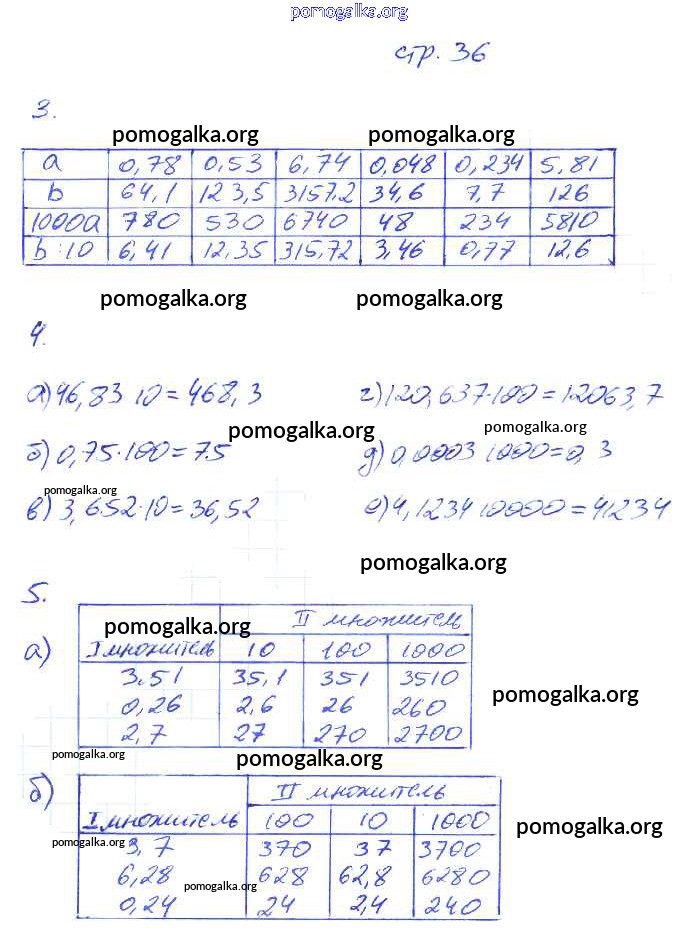 pomogalka.org
стр. 36
3.
pomogalka.org pomogalka.org
a 0,78 0,53 6,74 0,048 0,234 5,81
b 64,1 123,5 3157,2 34,6 7,7 126
1000a 780 530 6740 48 234 5810
b:10 6,41 12,35 315,72 3,46 0,77 12,6
pomogalka.org pomogalka.org
4.
а) 46,83 10 = 468,3 г) 120,637·100 = 12063,7
pomogalka.org pomogalka.org
б) 0,75·100 = 75 д) 0,0003 1000 = 0,3
pomogalka.org
в) 3,652·10 = 36,52 е) 4,1234 10000 = 41234
pomogalka.org
5.
II множитель
pomogalka.org
а) I множитель 10 100 1000
3,51 35,1 351 3510
pomogalka.org
0,26 2,6 26 260
2,7 27 270 2700
pomogalka.org pomogalka.org
б) II множитель
I множитель 100 10 1000
pomogalka.org
pomogalka.org
3,7 370 37 3700
6,28 628 62,8 6280
pomogalka.org
0,24 24 2,4 240